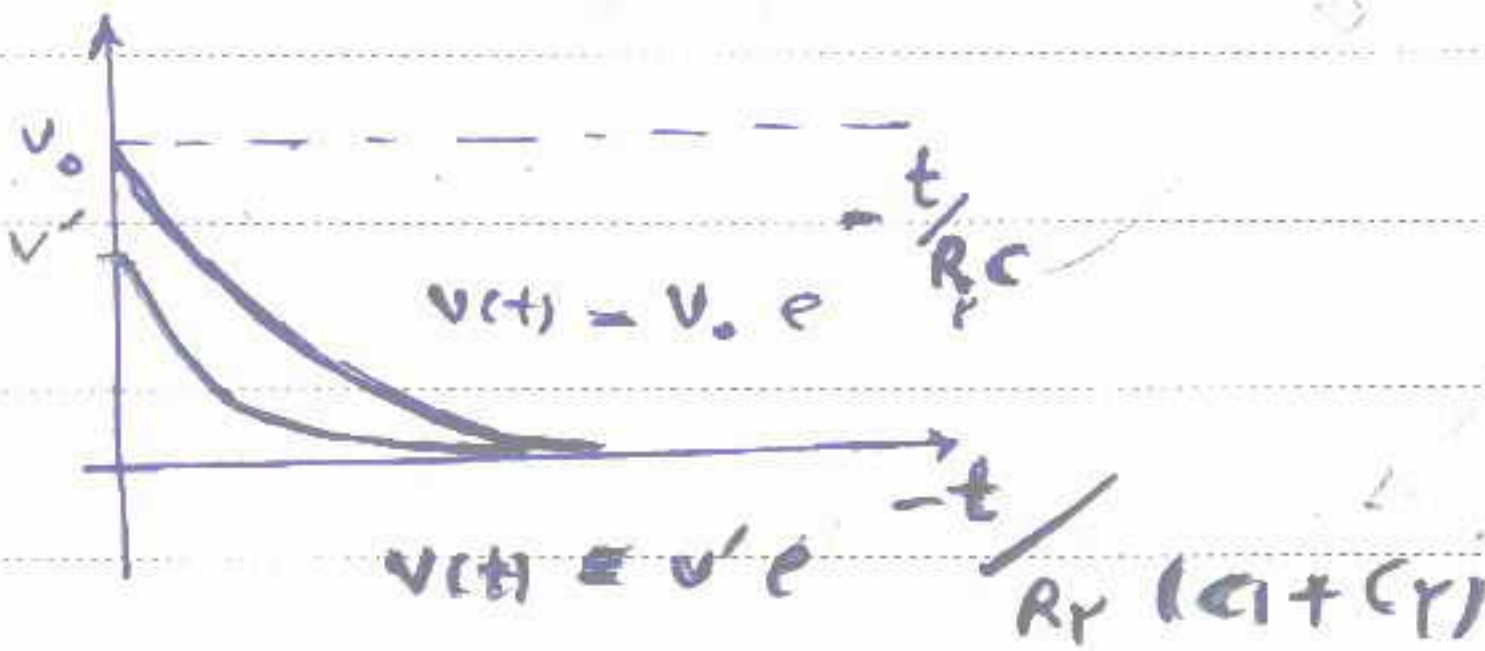 V₀
V′
V(t) = V₀ e - t/R٢C
V(t) = V′ e -t/R٢ (C١ + C٢)